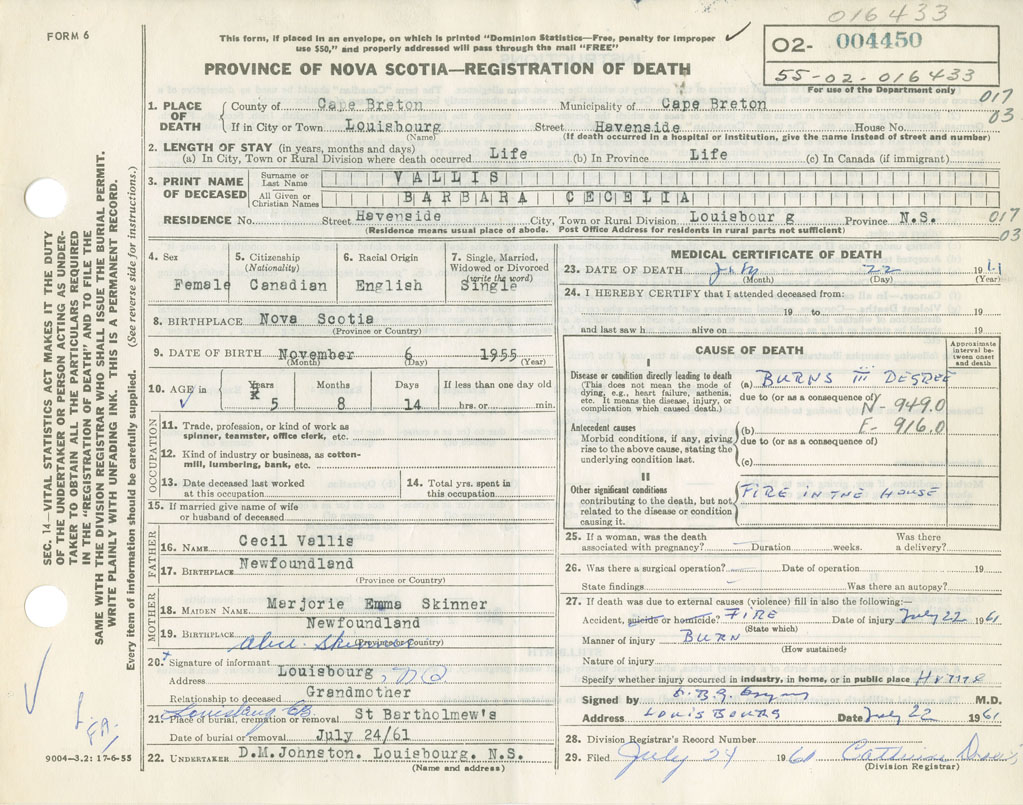 016433
FORM 6
This form, if placed in an envelope, on which is printed "Dominion Statistics—Free, penalty for improper use $50," and properly addressed will pass through the mail "FREE"
02- 004450
55-02-016433
For use of the Department only
PROVINCE OF NOVA SCOTIA—REGISTRATION OF DEATH
017
03
1. PLACE OF DEATH
County of Cape Breton Municipality of Cape Breton
If in City or Town Louisbourg Street Havenside House No.
(Name) (If death occurred in a hospital or institution, give the name instead of street and number)
2. LENGTH OF STAY (in years, months and days)
(a) In City, Town or Rural Division where death occurred Life (b) In Province Life (c) In Canada (if immigrant)
3. PRINT NAME OF DECEASED
Surname or Last Name VALLIS
All Given or Christian Names BARBARA CECELIA
RESIDENCE No. Street Havenside City, Town or Rural Division Louisbour g Province N.S.
(Residence means usual place of abode. Post Office Address for residents in rural parts not sufficient)
017
03
4. Sex Female
5. Citizenship (Nationality) Canadian
6. Racial Origin English
7. Single, Married, Widowed or Divorced (write the word) Single
8. BIRTHPLACE Nova Scotia
(Province or Country)
9. DATE OF BIRTH November 6 1955
(Month) (Day) (Year)
10. AGE in Years Months Days If less than one day old
5 8 14 hrs. or min.
OCCUPATION
11. Trade, profession, or kind of work as spinner, teamster, office clerk, etc.
12. Kind of industry or business, as cotton-mill, lumbering, bank, etc.
13. Date deceased last worked at this occupation
14. Total yrs. spent in this occupation
15. If married give name of wife or husband of deceased
FATHER
16. NAME Cecil Vallis
17. BIRTHPLACE Newfoundland
(Province or Country)
MOTHER
18. MAIDEN NAME Marjorie Emma Skinner
19. BIRTHPLACE Newfoundland
(Province or Country)
20. Signature of informant
Address Louisbourg, NS
Relationship to deceased Grandmother
21. Place of burial, cremation or removal St Bartholmew's
Date of burial or removal July 24/61
22. UNDERTAKER D.M.Johnston. Louisbourg. N.S.
(Name and address)
MEDICAL CERTIFICATE OF DEATH
23. DATE OF DEATH July 22 1961
(Month) (Day) (Year)
24. I HEREBY CERTIFY that I attended deceased from:
19 to 19
and last saw h alive on 19
CAUSE OF DEATH
Approximate interval between onset and death
I
Disease or condition directly leading to death
(This does not mean the mode of dying, e.g., heart failure, asthenia, etc. It means the disease, injury, or complication which caused death.)
(a) BURNS III DEGREE
due to (or as a consequence of)
N-949.0
Antecedent causes
Morbid conditions, if any, giving rise to the above cause, stating the underlying condition last.
(b) E-916.0
due to (or as a consequence of)
(c)
II
Other significant conditions
contributing to the death, but not related to the disease or condition causing it.
FIRE IN THE HOUSE
25. If a woman, was the death associated with pregnancy? Duration weeks. Was there a delivery?
26. Was there a surgical operation? Date of operation 19
State findings Was there an autopsy?
27. If death was due to external causes (violence) fill in also the following:—
Accident, suicide or homicide? FIRE Date of injury July 22 1961
(State which)
Manner of injury BURN
(How sustained)
Nature of injury
Specify whether injury occurred in industry, in home, or in public place HOME
Signed by M.D.
Address LOUISBOURG Date July 22 1961
28. Division Registrar's Record Number
29. Filed July 24 1961
(Division Registrar)
SEC. 14—VITAL STATISTICS ACT MAKES IT THE DUTY OF THE UNDERTAKER OR PERSON ACTING AS UNDERTAKER TO OBTAIN ALL THE PARTICULARS REQUIRED IN THE "REGISTRATION OF DEATH" AND TO FILE THE SAME WITH THE DIVISION REGISTRAR WHO SHALL ISSUE THE BURIAL PERMIT.
WRITE PLAINLY WITH UNFADING INK. THIS IS A PERMANENT RECORD.
Every item of information should be carefully supplied. (See reverse side for instructions.)
9004—3.2: 17-6-55